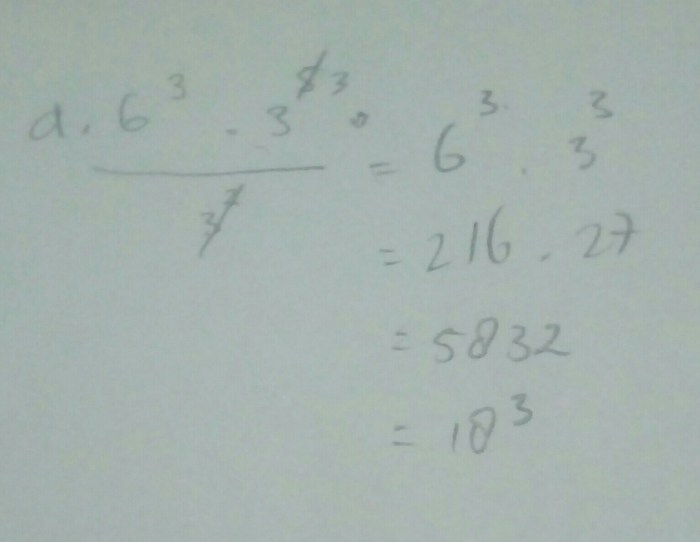 a. 6³ · 3 ³ = 6³ · 3³
3
= 216 . 27
= 5832
= 18³